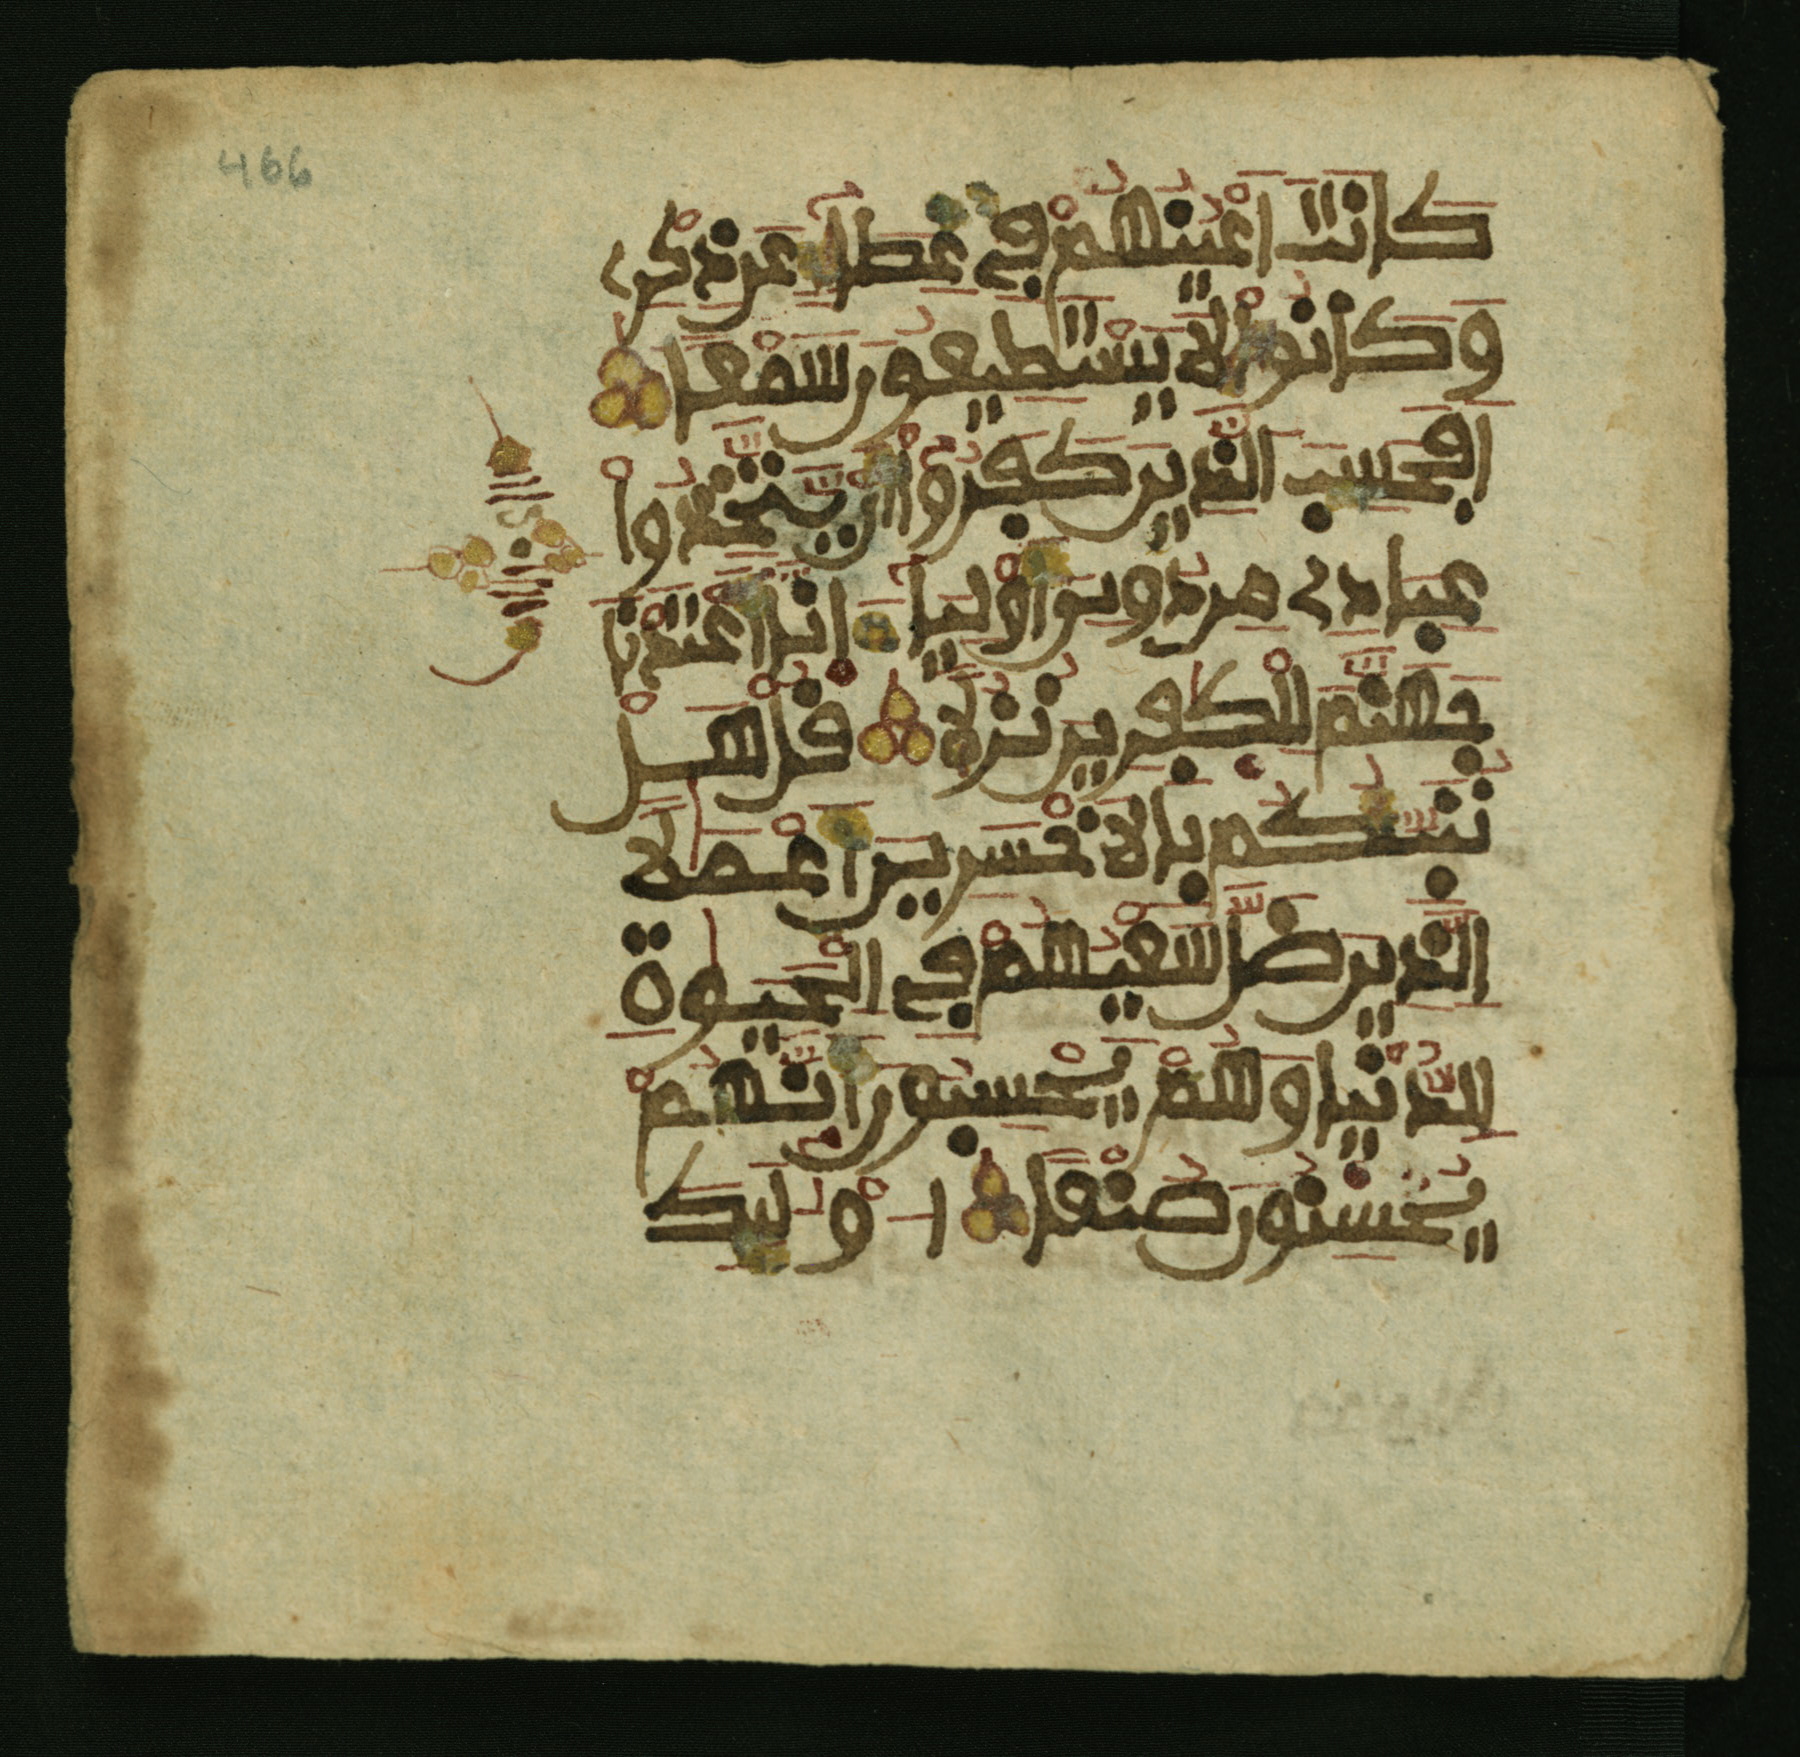 466
كانت اعينهم في غطاء عن ذكري
وكانوا لا يستطيعون سمعا
افحسب الذين كفروا ان يتخذوا
عبادي من دوني اوليا انا اعتدنا
جهنم للكفرين نزلا قل هل
ننبئكم بالاخسرين اعملا
الذين ضل سعيهم في الحيوة
الدنيا وهم يحسبون انهم
يحسنون صنعا اوليك